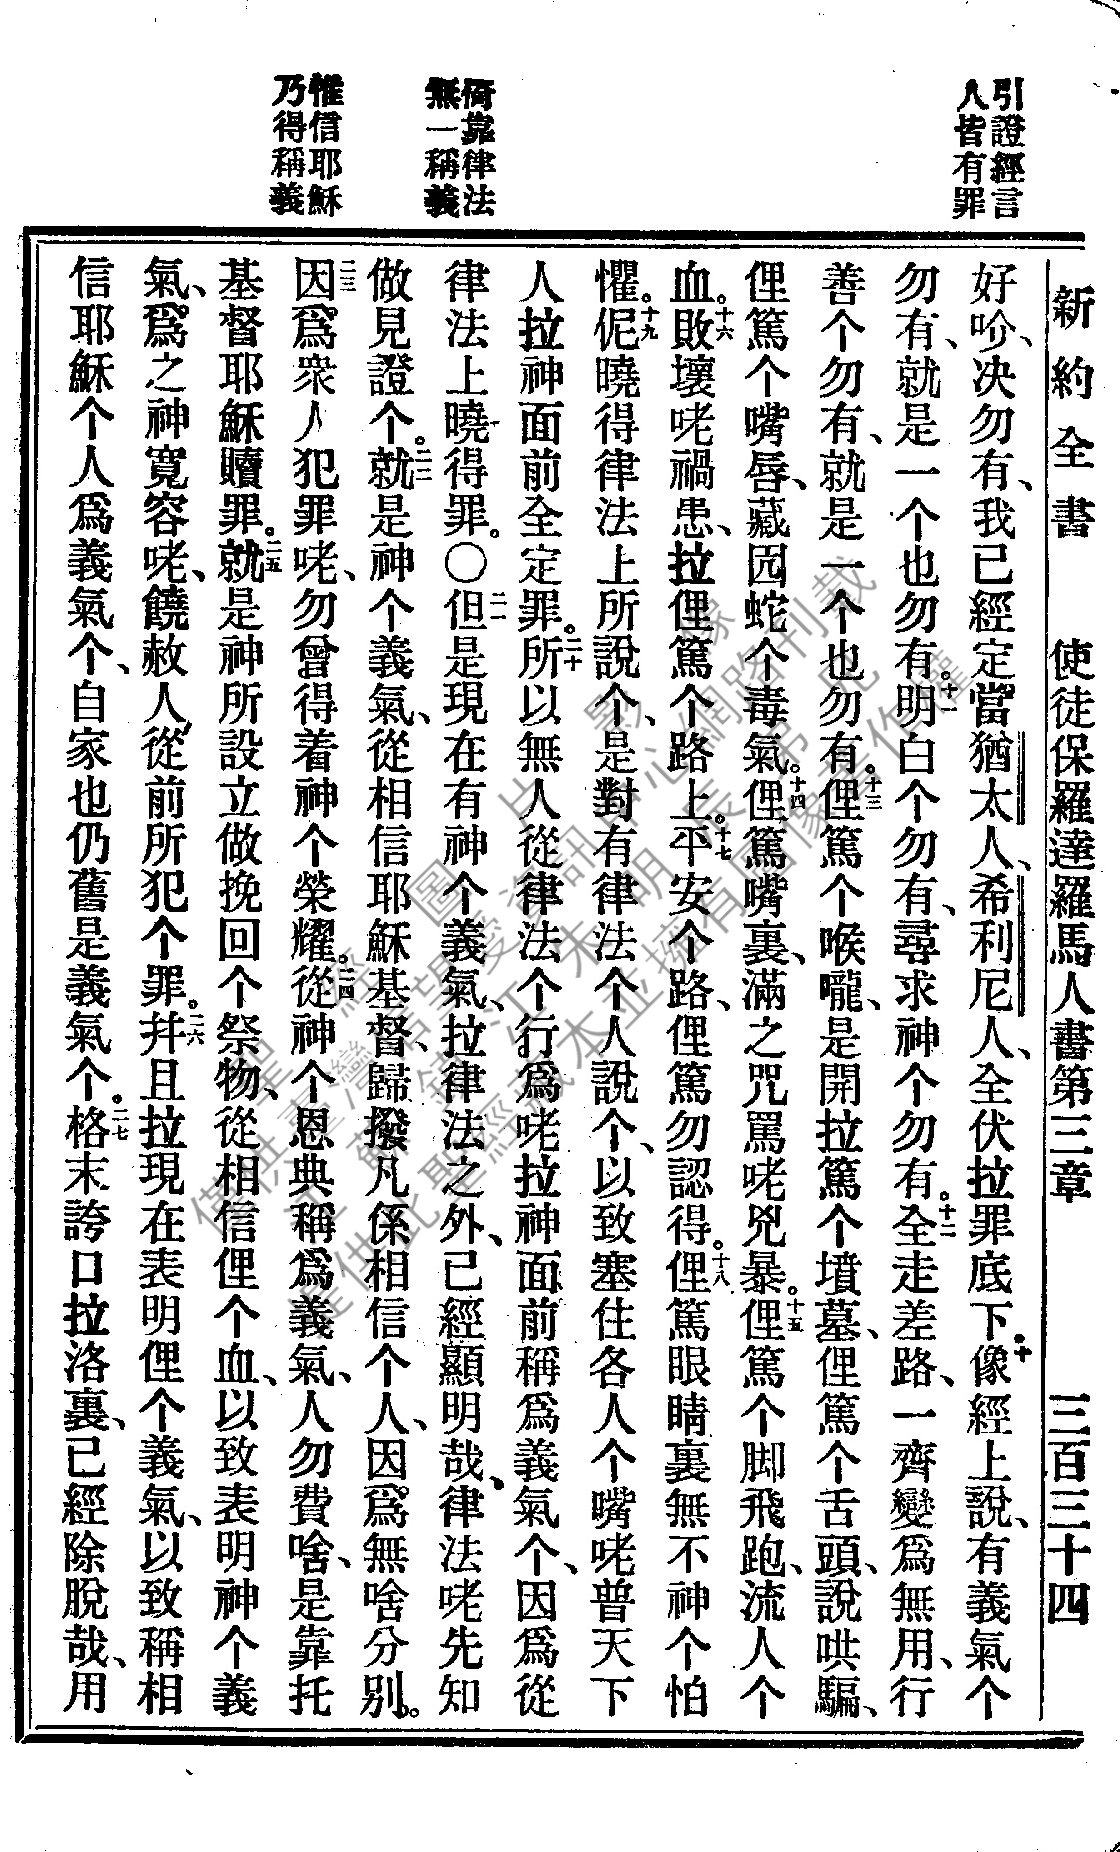 新約全書 使徒保羅達羅馬人書第三章 三百三十四
引證經言
人皆有罪
倚靠律法
無一稱義
惟信耶穌
乃得稱義
好吤、决勿有、我已經定當猶太人、希利尼人、全伏拉罪底下。十像經上說、有義氣个
勿有、就是一个也勿有。十一明白个勿有、尋求神个勿有。十二全走差路、一齊變爲無用、行
善个勿有、就是一个也勿有。十三俚篤个喉嚨、是開拉篤个墳墓、俚篤个舌頭、說哄騙、
俚篤个嘴唇、藏囥蛇个毒氣。十四俚篤嘴裏、滿之咒罵咾兇暴。十五俚篤个脚飛跑、流人个
血。十六敗壞咾禍患、拉俚篤个路上。十七平安个路、俚篤勿認得。十八俚篤眼睛裏無不神个怕
懼。十九伲曉得律法上所說个、是對有律法个人說个、以致塞住各人个嘴咾普天下
人拉神面前全定罪。二十所以無人從律法个行爲咾拉神面前稱爲義氣个、因爲從
律法上曉得罪。〇二一但是現在有神个義氣、拉律法之外、已經顯明哉、律法咾先知
做見證个。二二就是神个義氣、從相信耶穌基督、歸撥凡係相信个人、因爲無啥分別。
二三因爲衆人犯罪咾、勿曾得着神个榮耀。二四從神个恩典稱爲義氣、人勿費啥、是靠托
基督耶穌贖罪。二五就是神所設立做挽回个祭物、從相信俚个血、以致表明神个義
氣、爲之神寬容咾、饒赦人、從前所犯个罪。二六幷且拉現在表明俚个義氣、以致稱相
信耶穌个人爲義氣个、自家也仍舊是義氣个。二七格末誇口拉洛裏、已經除脫哉、用